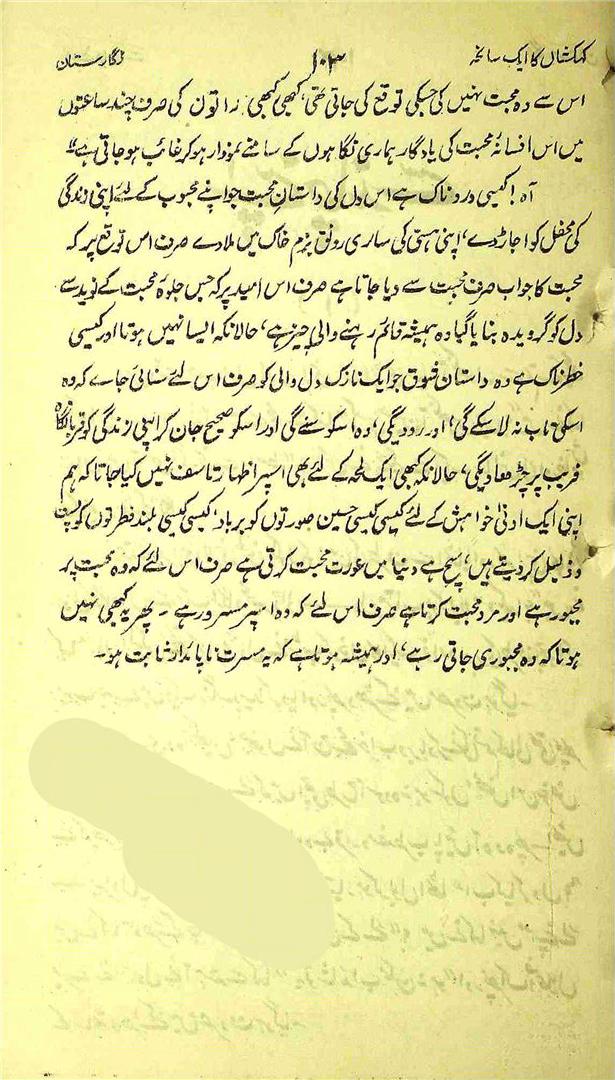 کہکشاں کا ایک سانحہ
۱۰۳
نگارستان
اس سے وہ محبت نہیں کی جسکی توقع کی جاتی تھی، کبھی کبھی راتون کی صرف چند ساعتوں
میں اس افسانۂ محبت کی یادگار ہماری نگاہوں کے سامنے نمودار ہو کر غائب ہو جاتی ہے"
آہ! کیسی دردناک ہے اس دل کی داستانِ محبت جو اپنے محبوب کے لئے اپنی زندگی
کی محفل کو اجاڑ دے، اپنی ہستی کی ساری رونق بزم خاک میں ملا دے صرف اس توقع پر کہ
محبت کا جواب صرف محبت سے دیا جاتا ہے صرف اس امید پر کہ جس جلوۂ محبت کے نوید سے
دل کو گرویدہ بنایا گیا وہ ہمیشہ قائم رہنے والی چیز ہے، حالانکہ ایسا نہیں ہوتا اور کیسی
خطرناک ہے وہ داستان فسوق جو ایک نازک دل والی کو صرف اس لئے سنائی جاے کہ وہ
اسکی تاب نہ لا سکے گی، اور رودیگی، وہ اسکو سنے گی اور اسکو صحیح جان کر اپنی زندگی کو قربانگاہ
فریب پر چڑھا دیگی، حالانکہ کبھی ایک لمحہ کے لئے بھی اسپر اظہار تاسف نہیں کیا جاتا کہ ہم
اپنی ایک ادنیٰ خواہش کے لئے کیسی کیسی حسین صورتوں کو برباد، کیسی کیسی بلند فطرتوں کو پست
و ذلیل کر دیتے ہیں، سچ ہے دنیا میں عورت محبت کرتی ہے صرف اس لئے کہ وہ محبت پر
مجبور ہے اور مرد محبت کرتا ہے صرف اس لئے کہ وہ اسپر مسرور ہے ۔ پھر یہ کبھی نہیں
ہوتا کہ وہ مجبوری جاتی رہے، اور ہمیشہ ہوتا ہے کہ یہ مسرت ناپائدار ثابت ہو۔